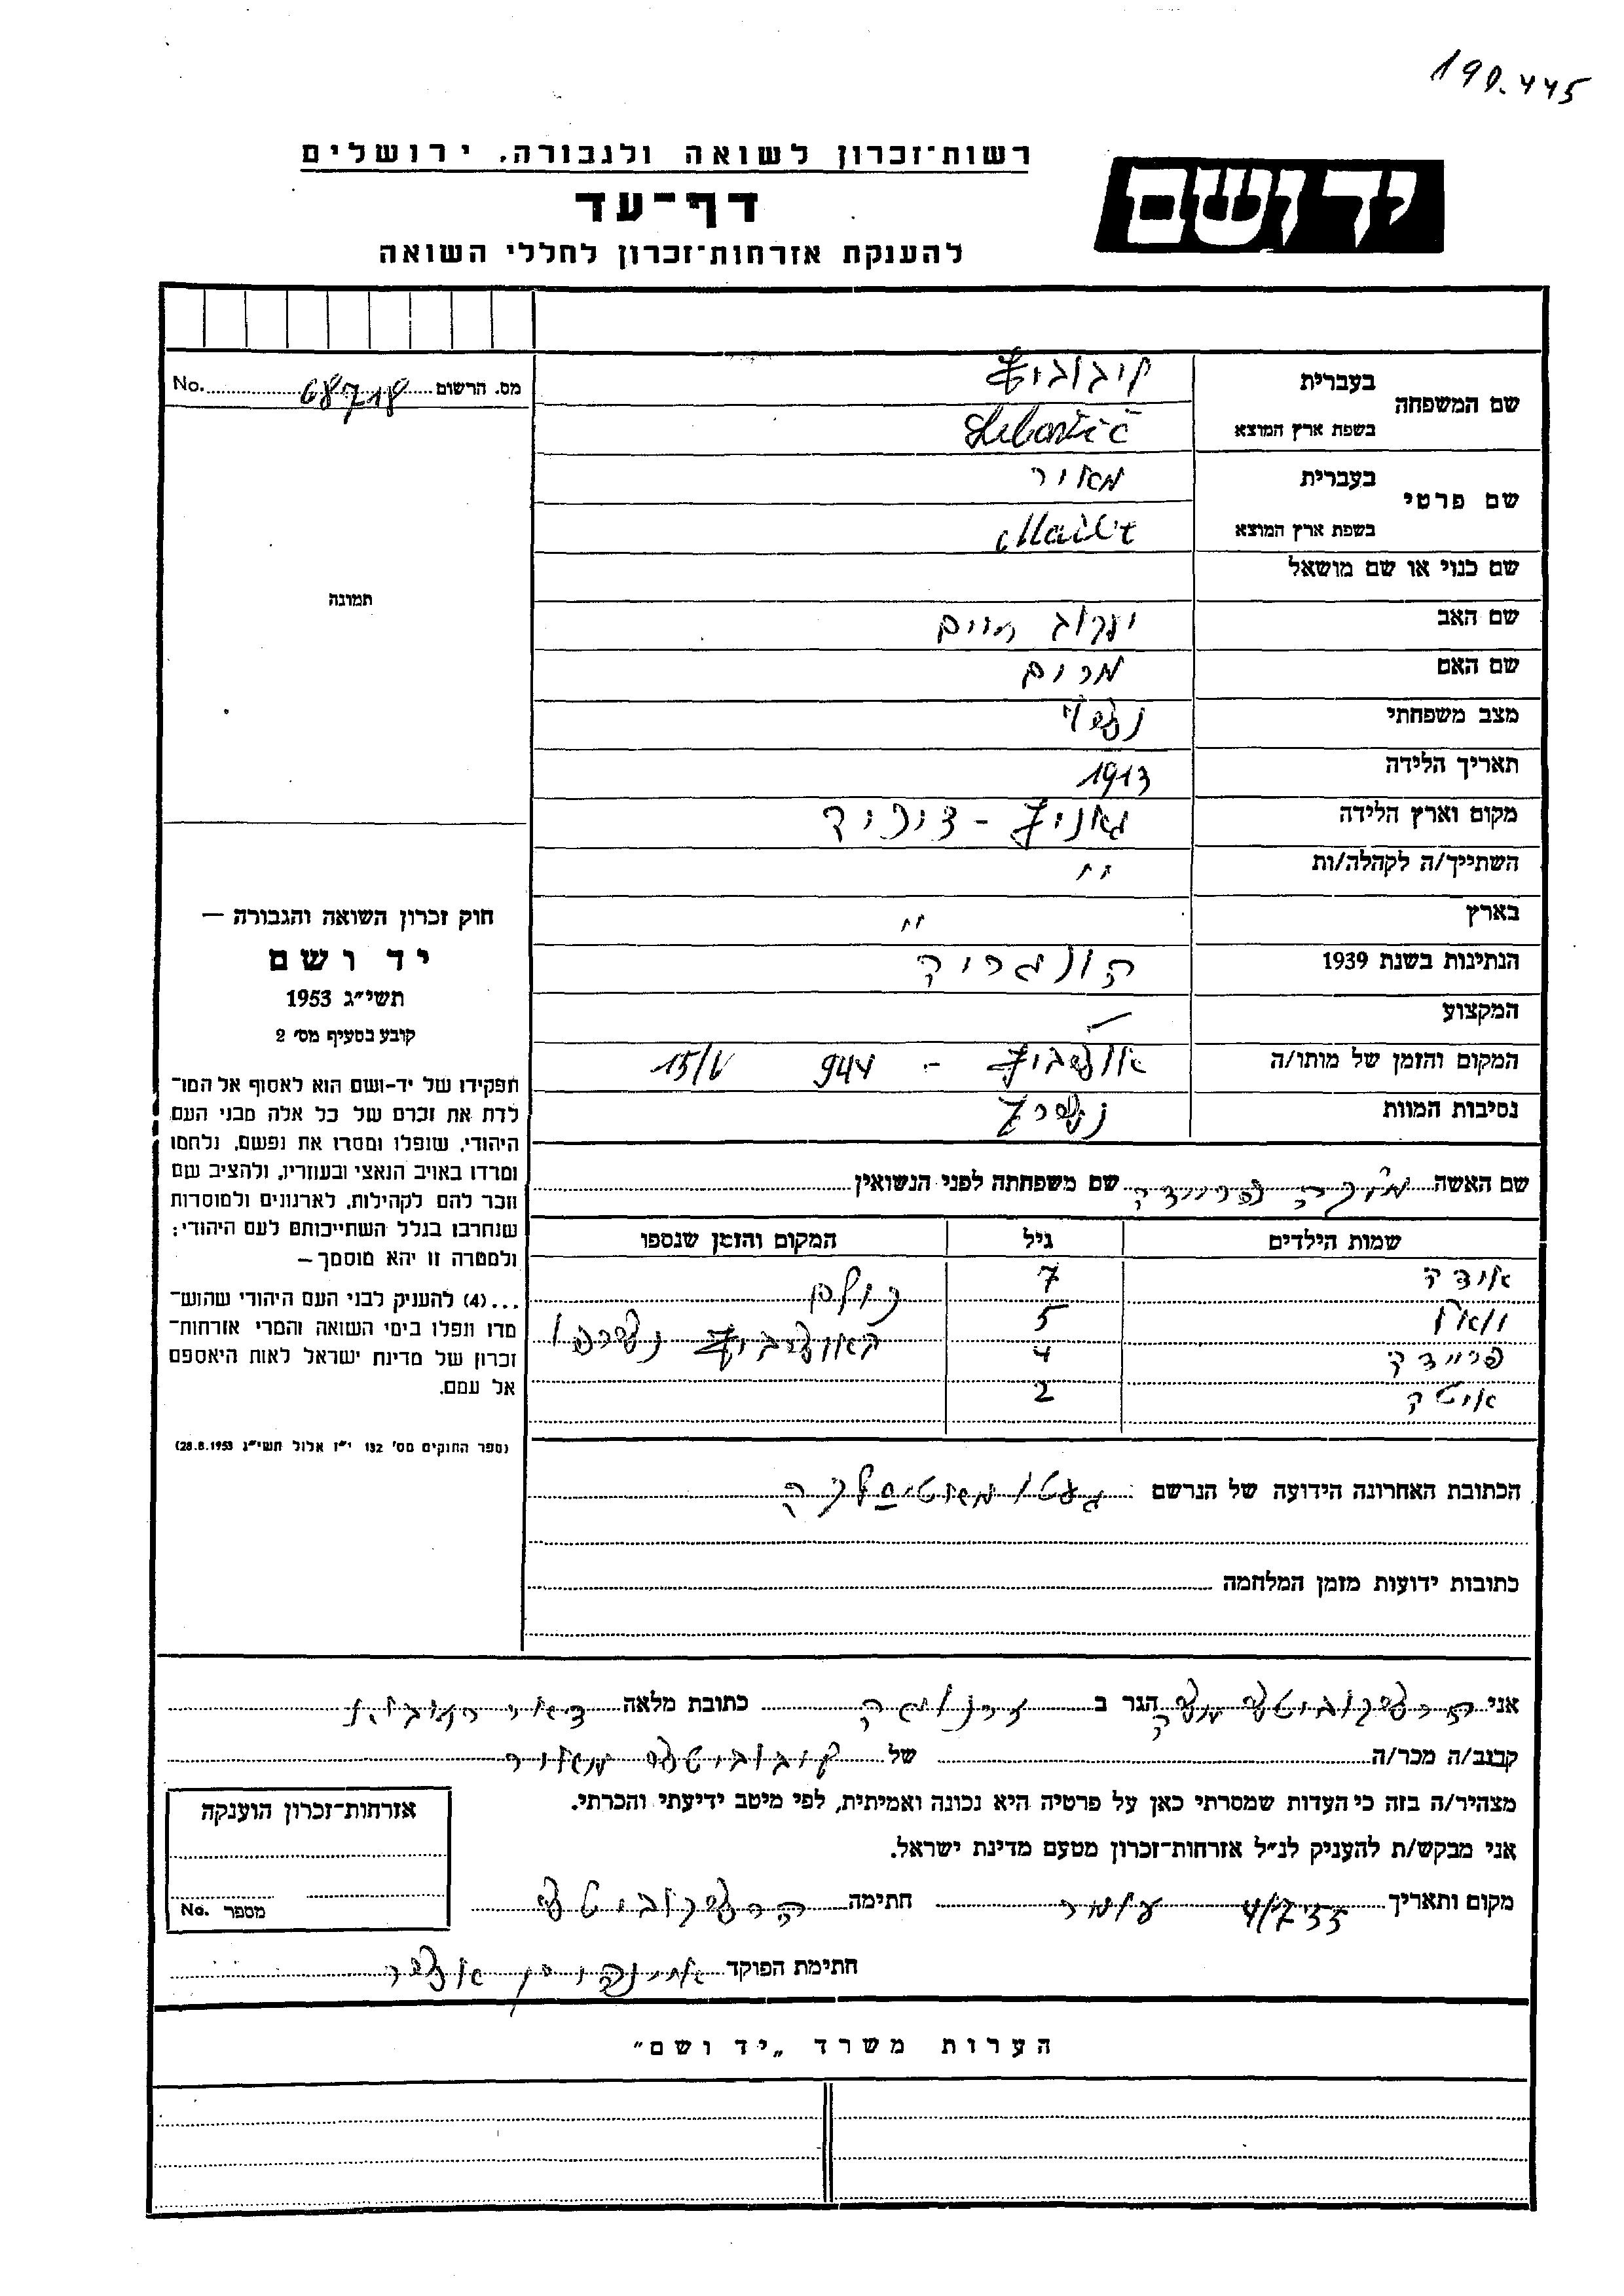 190.445
רשות־זכרון לשואה ולגבורה, ירושלים
יד ושם
דף־עד
להענקת אזרחות־זכרון לחללי השואה
מס. הרשום 68718 No.
שם המשפחה
בעברית
ליבוביץ
בשפת ארץ המוצא
שם פרטי
בעברית מאיר
בשפת ארץ המוצא
שם כנוי או שם מושאל
תמונה
שם האב יעקוב חיים
שם האם מרים
מצב משפחתי נשוי
תאריך הלידה 1913
מקום וארץ הלידה
השתייך/ה לקהלה/ות "
בארץ "
הנתינות בשנת 1939 הונגריה
המקצוע
המקום והזמן של מותו/ה אושביץ - 944 15/V
נסיבות המוות נשרף
חוק זכרון השואה והגבורה —
יד ושם
תשי״ג 1953
קובע בסעיף מס׳ 2
תפקידו של יד-ושם הוא לאסוף אל המו־
לדת את זכרם של כל אלה מבני העם
היהודי, שנפלו ומסרו את נפשם, נלחמו
ומרדו באויב הנאצי ובעוזריו, ולהציב שם
וזכר להם לקהילות, לארגונים ולמוסדות
שנחרבו בגלל השתייכותם לעם היהודי;
ולמטרה זו יהא מוסמך —
...(4) להעניק לבני העם היהודי שהוש־
מדו ונפלו בימי השואה והמרי אזרחות־
זכרון של מדינת ישראל לאות היאספם
אל עמם.
(ספר החוקים מס׳ 132 י״ז אלול תשי״ג 28.8.1953)
שם האשה שם משפחתה לפני הנשואין
שמות הילדים גיל המקום והזמן שנספו
7 כולם
5
פריידה 4 באושביץ נשרפו
איטה 2
הכתובת האחרונה הידועה של הנרשם געטו
כתובות ידועות מזמן המלחמה
אני הרשקוביטש משה הגר ב זרנוגה כתובת מלאה דאר רחובות
קבוב/ה מכר/ה של ליבוביטש מאיר
מצהיר/ה בזה כי העדות שמסרתי כאן על פרטיה היא נכונה ואמיתית, לפי מיטב ידיעתי והכרתי.
אני מבקש/ת להעניק לנ״ל אזרחות־זכרון מטעם מדינת ישראל.
מקום ותאריך 4/7 55 חתימה הרשקוביטש
חתימת הפוקד
אזרחות־זכרון הוענקה
מספר No.
הערות משרד „יד ושם״